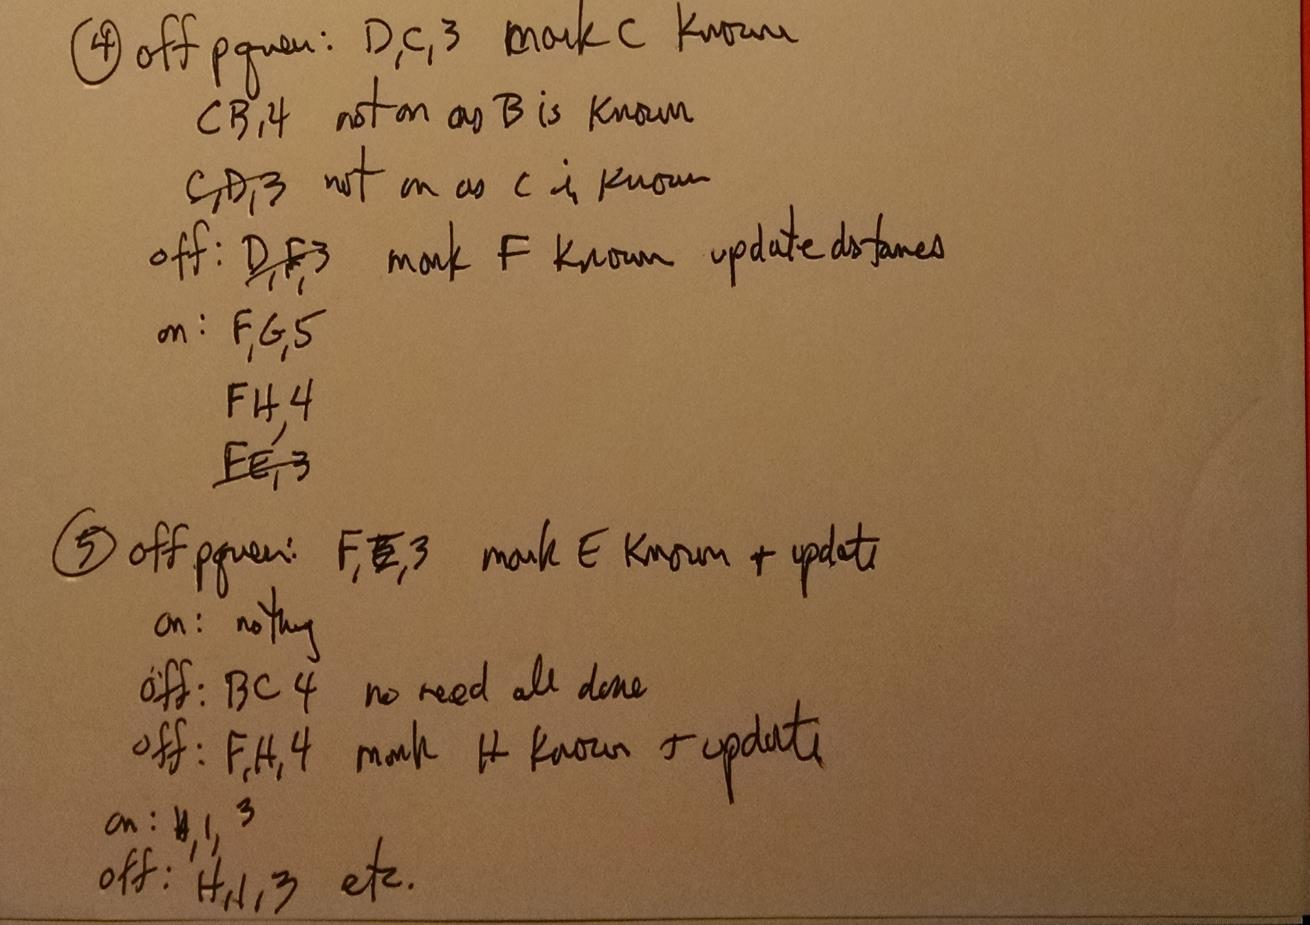 ④ off pqueu: D,C,3 mark C known
CB,4 not on as B is known
C,D,3 not on as C is known
off: D,F,3 mark F known update distances
on: F,G,5
FH,4
FE,3
⑤ off pqueu: F,E,3 mark E known + update
on: nothing
off: BC 4 no need all done
off: F,H,4 mark H known + update
on: H,I,3
off: H,I,3 etc.